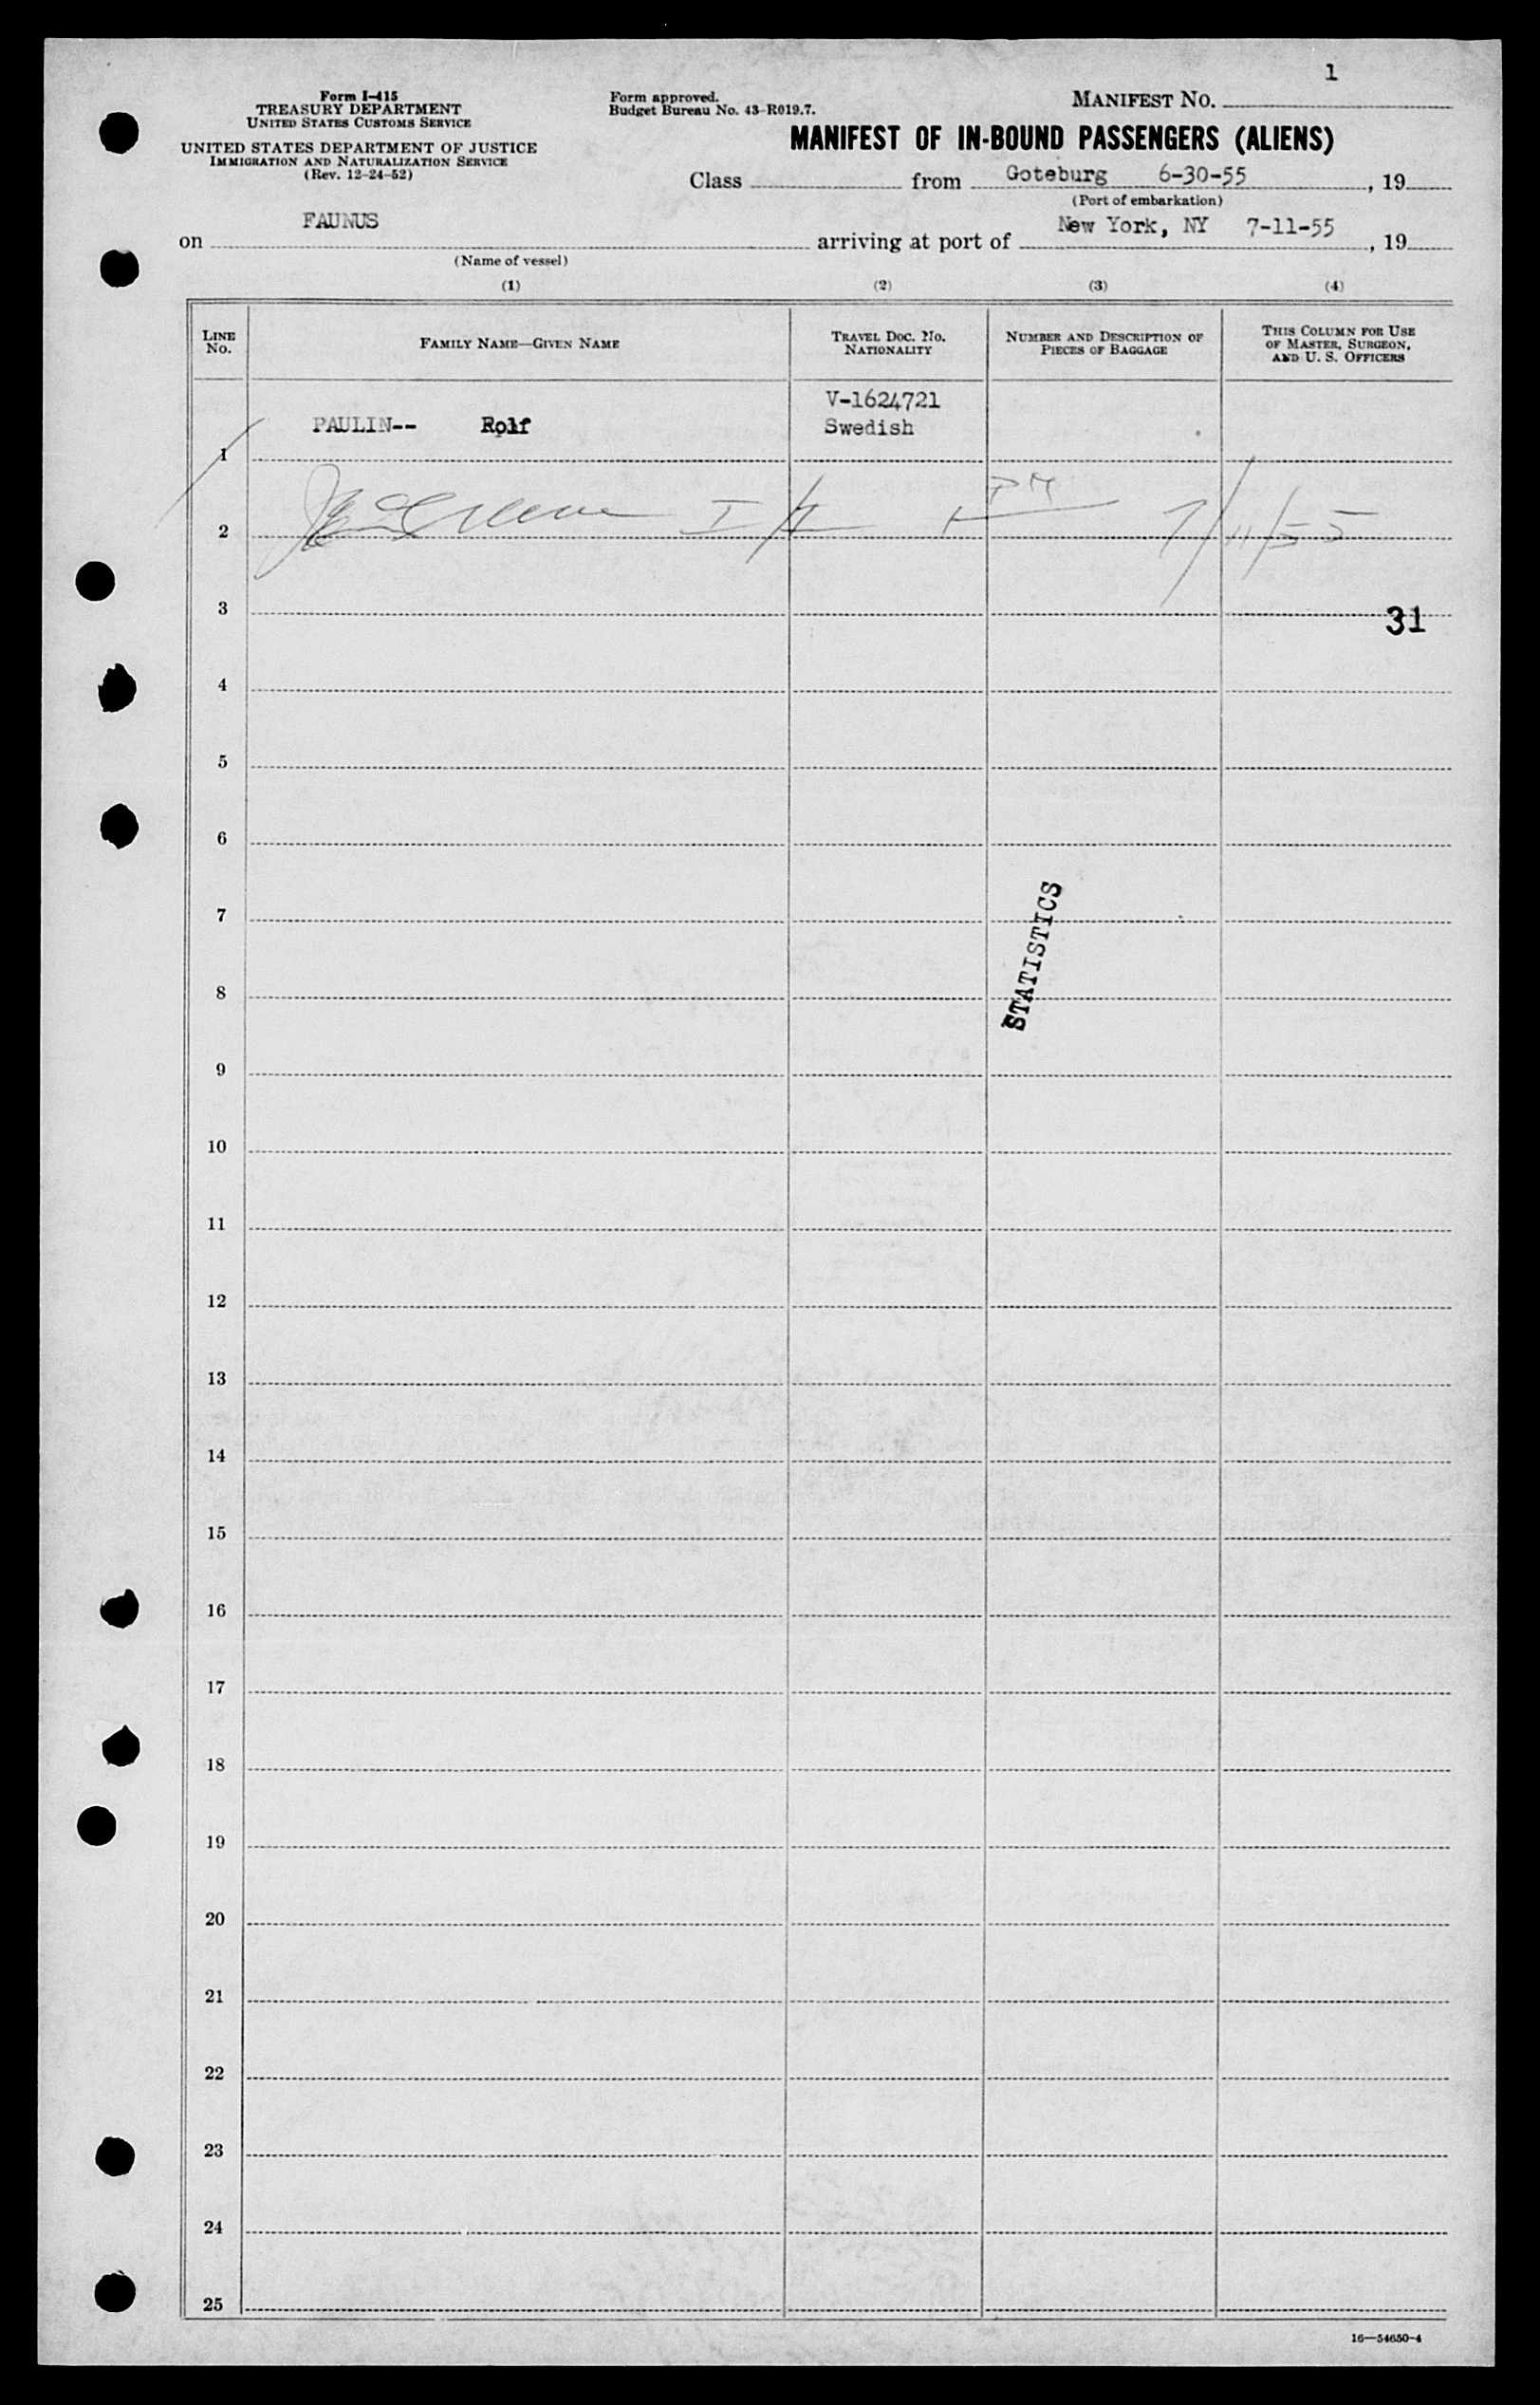 1
Form I-415
TREASURY DEPARTMENT
UNITED STATES CUSTOMS SERVICE
UNITED STATES DEPARTMENT OF JUSTICE
IMMIGRATION AND NATURALIZATION SERVICE
(Rev. 12-24-52)
Form approved.
Budget Bureau No. 43-R019.7.
MANIFEST NO.
MANIFEST OF IN-BOUND PASSENGERS (ALIENS)
Class from Goteburg 6-30-55, 19
(Port of embarkation)
on FAUNUS arriving at port of New York, NY 7-11-55, 19
(Name of vessel)
(1) (2) (3) (4)
LINE NO.
FAMILY NAME—GIVEN NAME
TRAVEL DOC. NO.
NATIONALITY
NUMBER AND DESCRIPTION OF
PIECES OF BAGGAGE
THIS COLUMN FOR USE
OF MASTER, SURGEON,
AND U. S. OFFICERS
V-1624721
PAULIN-- Rolf Swedish
1
PM
2 7/11/55
3 31
4
5
6
7
STATISTICS
8
9
10
11
12
13
14
15
16
17
18
19
20
21
22
23
24
25
16—54650-4